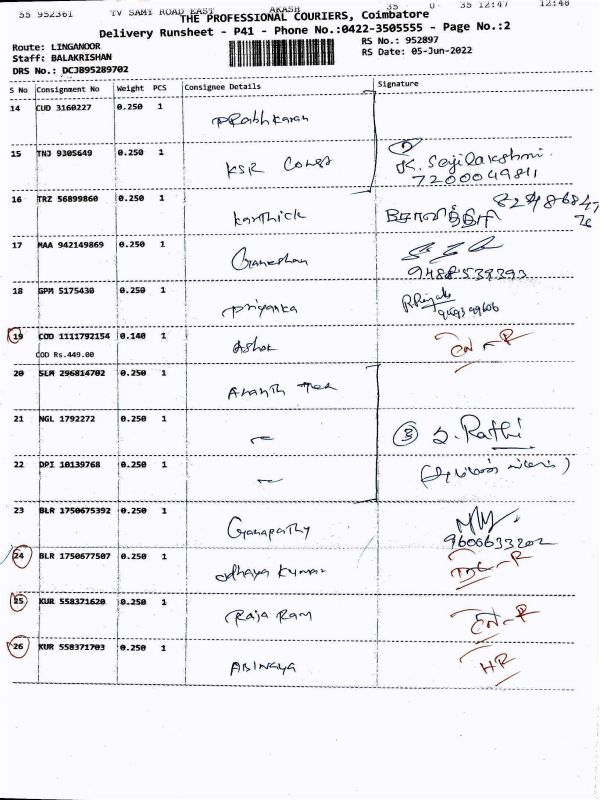 55 952361 TV SAMY ROAD EAST AKASH 35 0 35 12:47 12:48
THE PROFESSIONAL COURIERS, Coimbatore
Delivery Runsheet - P41 - Phone No.:0422-3505555 - Page No.:2
Route: LINGANOOR RS No.: 952897
Staff: BALAKRISHAN RS Date: 05-Jun-2022
DRS No.: DCJB95289702
S No Consignment No Weight PCS Consignee Details Signature
14 CUD 3160227 0.250 1 Prabhkaran
15 TNJ 9305649 0.250 1 KSR Const K. Sajilakshmi.
7200049811
16 TRZ 56899860 0.250 1 Karthick
17 MAA 942149869 0.250 1 Ganeshan
9488539393
18 GPM 5175430 0.250 1 Priyanka
19 COD 1111792154 0.140 1 Ashok
COD Rs.449.00
20 SLM 296814702 0.250 1 Ananth
21 NGL 1792272 0.250 1 3 S. Rathi
22 DPI 10139768 0.250 1
23 BLR 1750675392 0.250 1 Ganapathy
9606633202
24 BLR 1750677507 0.250 1 Udhaya Kumar
25 KUR 558371620 0.250 1 Raja Ram EN-R
26 KUR 558371703 0.250 1 Abinaya HR